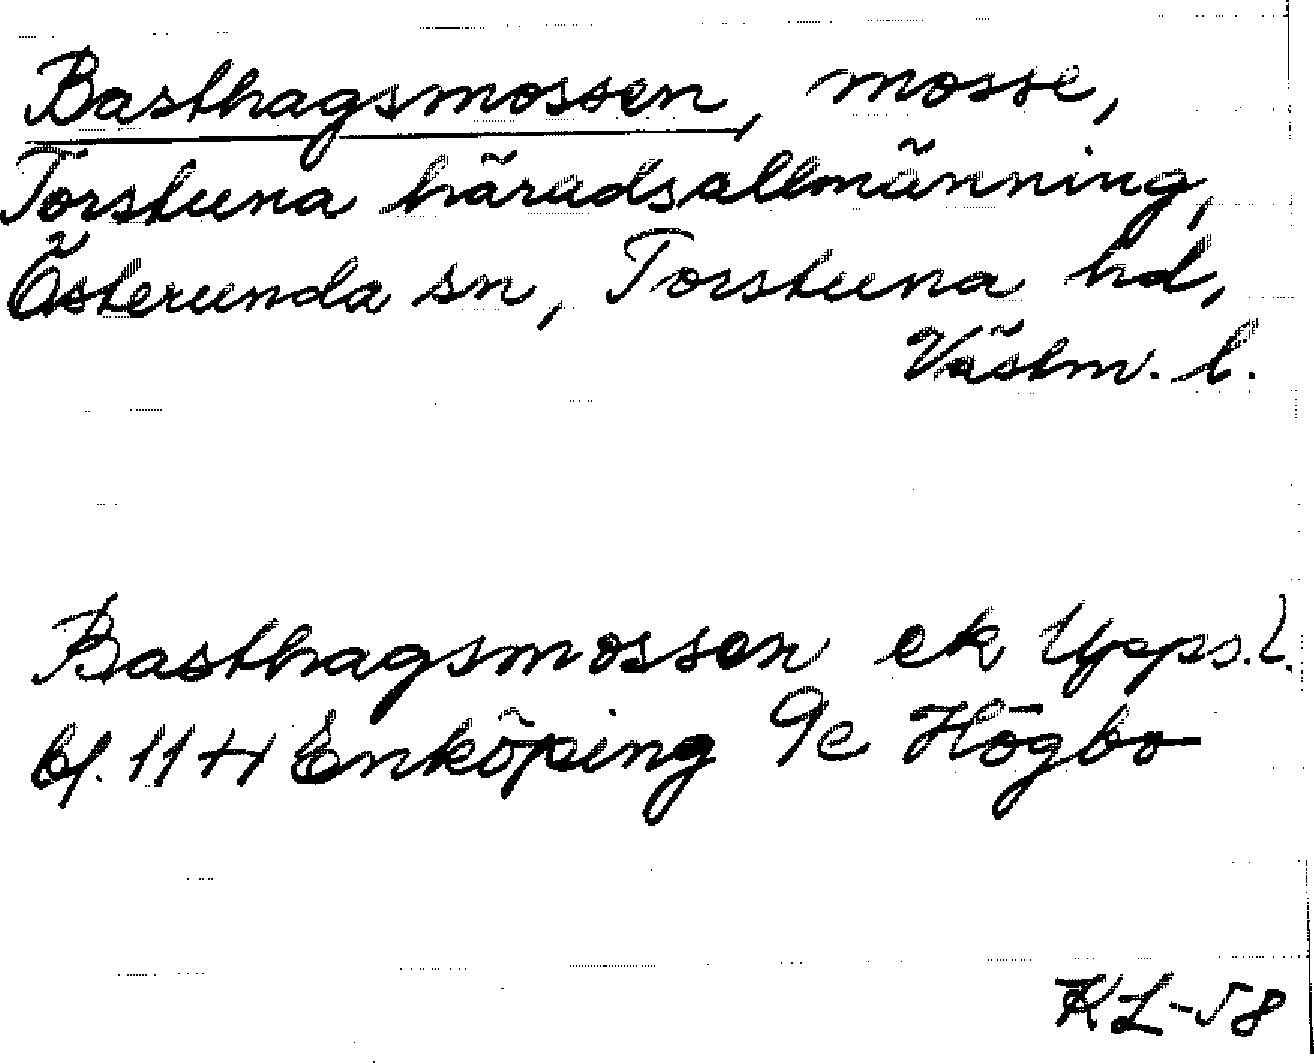 Basthagsmossen, mosse,
Torstuna häradsallmänning,
Österunda sn, Torstuna hd,
Västm. l.
Basthagsmossen ek Upps. l.
bl. 11 H Enköping 9e Högbo
KL-58